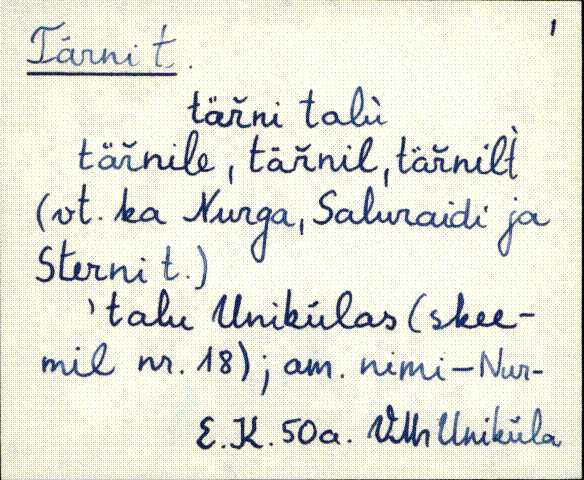 1
Tärni t.
täřni talù
täřnile, täřnil, täřnilt̀
(vt. ka Nurga, Saluraidi ja
Sterni t.)
'talu Unikülas (skee-
mil nr. 18); am. nimi – Nur-
E.K. 50a. VMr Uniküla